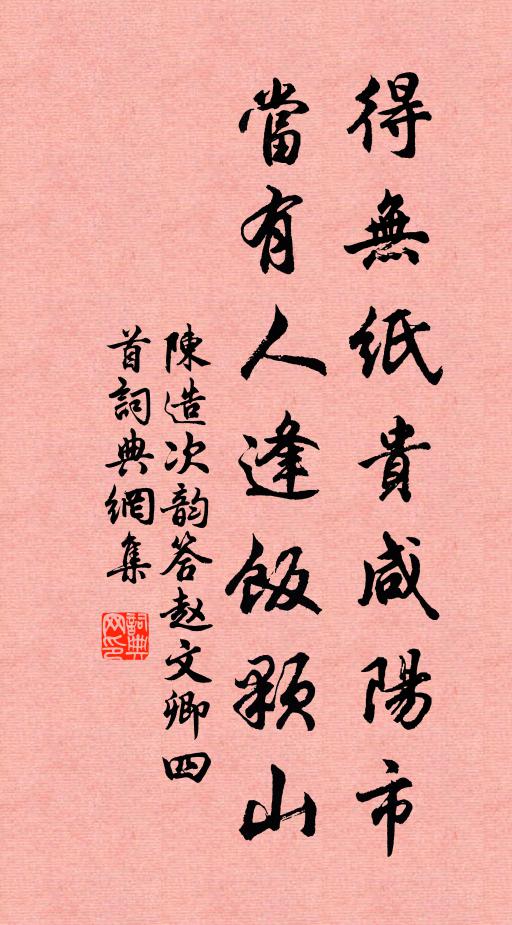 得無紙貴咸陽市
當有人逢飯顆山
陳造次韵答赵文卿四
首詞典網集
詞典網印